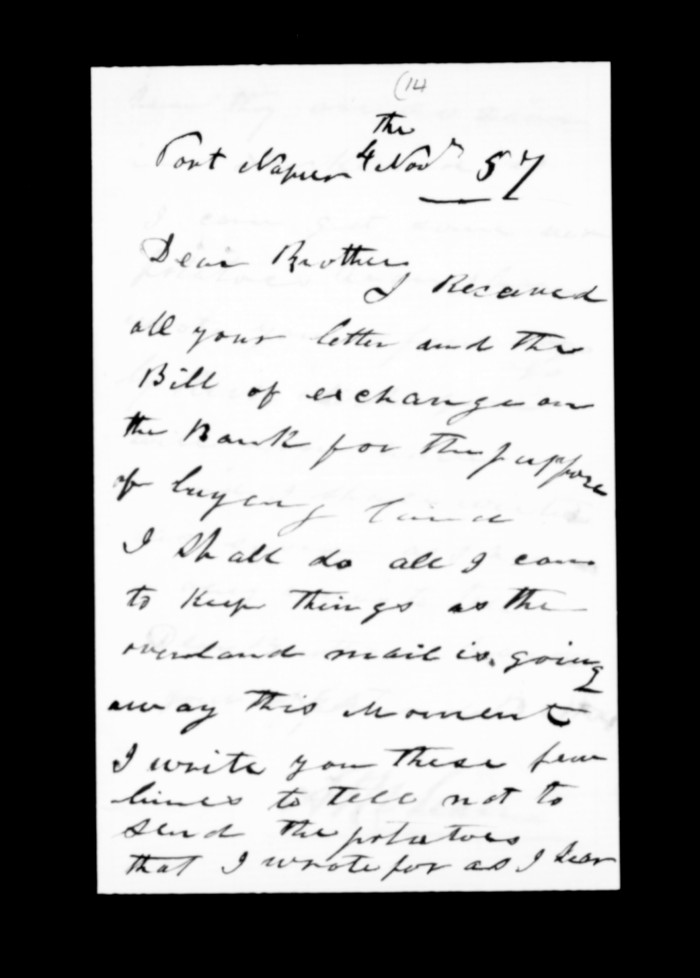 (14
the
Port Napier 4 Novr 57
Dear Brother
I Receaved
all your letter and the
Bill of exchange on
the Bank for the puppose
of buyeng land
I shall do all I can
to Keep things as the
overland mail is going
away this Moment
I write you these few
lines to tell not to
send the potatoes
that I wrote for as I